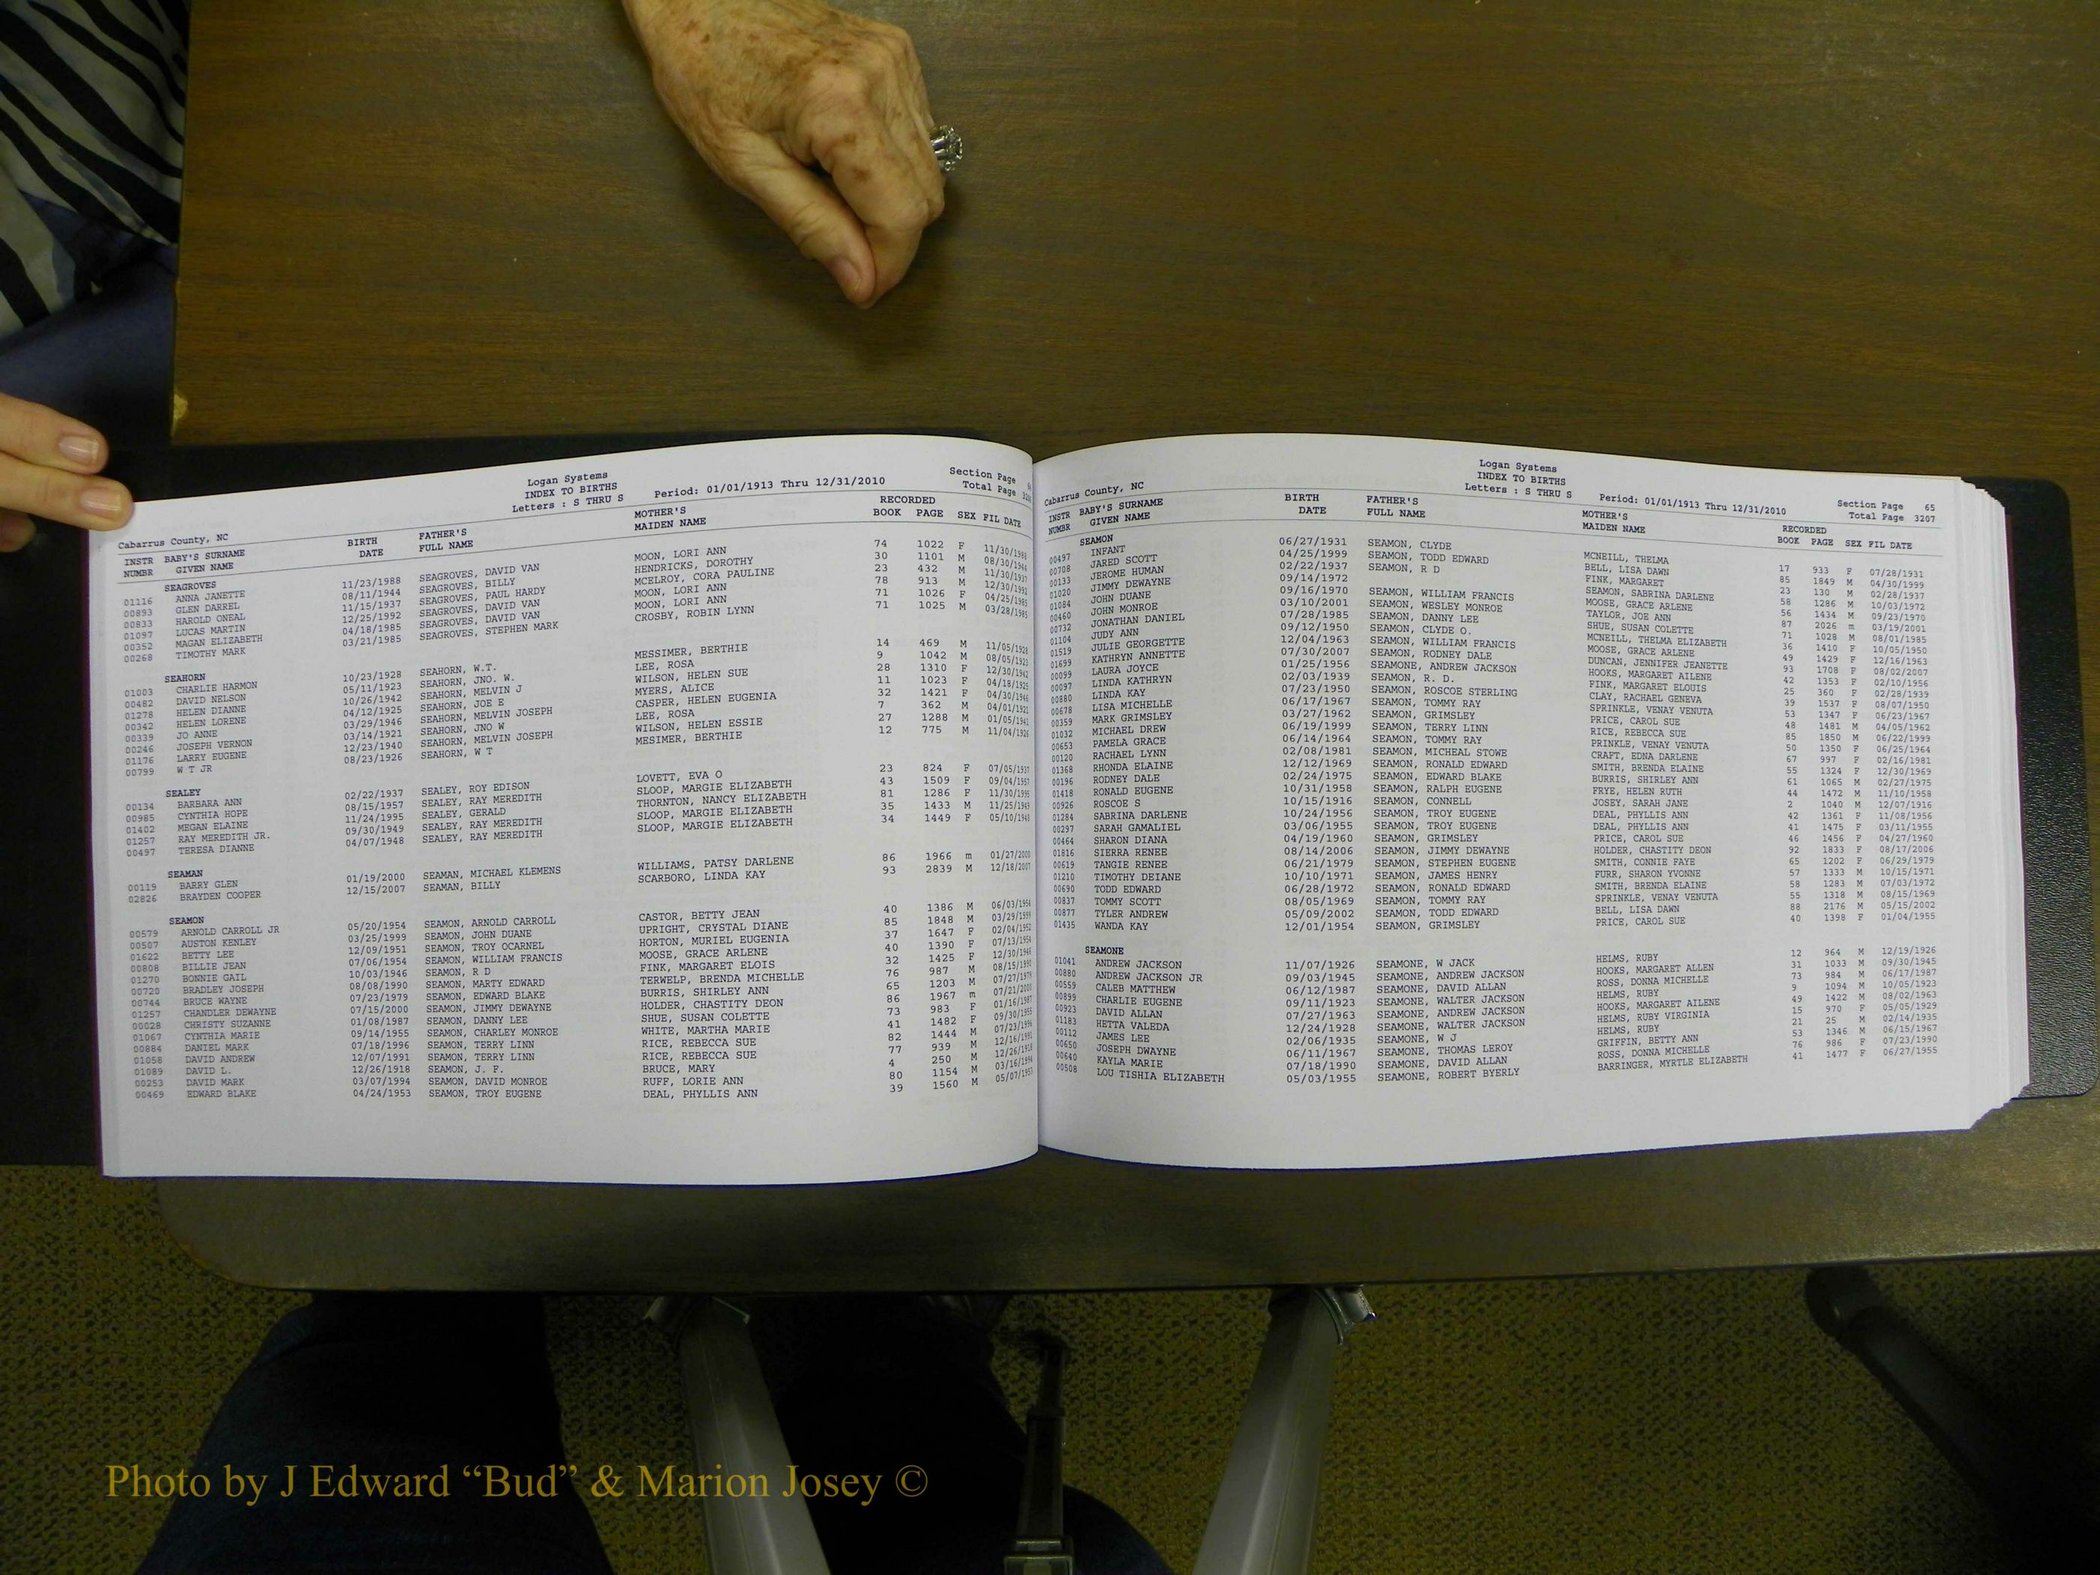 Cabarrus County, NC
Logan Systems
INDEX TO BIRTHS
Letters : S THRU S Period: 01/01/1913 Thru 12/31/2010
Section Page
Total Page
INSTR BABY'S SURNAME BIRTH FATHER'S MOTHER'S RECORDED
NUMBR GIVEN NAME DATE FULL NAME MAIDEN NAME BOOK PAGE SEX FIL DATE
SEAGROVES
01116 ANNA JANETTE 11/23/1988 SEAGROVES, DAVID VAN MOON, LORI ANN 74 1022 F 11/30/1988
00893 GLEN DARREL 08/11/1944 SEAGROVES, BILLY HENDRICKS, DOROTHY 30 1101 M 08/30/1944
00833 HAROLD ONEAL 11/15/1937 SEAGROVES, PAUL HARDY MCELROY, CORA PAULINE 23 432 M 11/30/1937
01097 LUCAS MARTIN 12/25/1992 SEAGROVES, DAVID VAN MOON, LORI ANN 78 913 M 12/30/1992
00352 MAGAN ELIZABETH 04/18/1985 SEAGROVES, DAVID VAN MOON, LORI ANN 71 1026 F 04/25/1985
00268 TIMOTHY MARK 03/21/1985 SEAGROVES, STEPHEN MARK CROSBY, ROBIN LYNN 71 1025 M 03/28/1985
SEAHORN
01003 CHARLIE HARMON 10/23/1928 SEAHORN, W.T. MESSIMER, BERTHIE 14 469 M 11/05/1928
00482 DAVID NELSON 05/11/1923 SEAHORN, JNO. W. LEE, ROSA 9 1042 M 08/05/1923
01278 HELEN DIANNE 10/26/1942 SEAHORN, MELVIN J WILSON, HELEN SUE 28 1310 F 12/30/1942
00342 HELEN LORENE 04/12/1925 SEAHORN, JOE E MYERS, ALICE 11 1023 F 04/18/1925
00339 JO ANNE 03/29/1946 SEAHORN, MELVIN JOSEPH CASPER, HELEN EUGENIA 32 1421 F 04/30/1946
00246 JOSEPH VERNON 03/14/1921 SEAHORN, JNO W LEE, ROSA 7 362 M 04/01/1921
01176 LARRY EUGENE 12/23/1940 SEAHORN, MELVIN JOSEPH WILSON, HELEN ESSIE 27 1288 M 01/05/1941
00799 W T JR 08/23/1926 SEAHORN, W T MESIMER, BERTHIE 12 775 M 11/04/1926
SEALEY
00134 BARBARA ANN 02/22/1937 SEALEY, ROY EDISON LOVETT, EVA O 23 824 F 07/05/1937
00985 CYNTHIA HOPE 08/15/1957 SEALEY, RAY MEREDITH SLOOP, MARGIE ELIZABETH 43 1509 F 09/04/1957
01402 MEGAN ELAINE 11/24/1995 SEALEY, GERALD THORNTON, NANCY ELIZABETH 81 1286 F 11/30/1995
01257 RAY MEREDITH JR. 09/30/1949 SEALEY, RAY MEREDITH SLOOP, MARGIE ELIZABETH 35 1433 M 11/25/1949
00497 TERESA DIANNE 04/07/1948 SEALEY, RAY MEREDITH SLOOP, MARGIE ELIZABETH 34 1449 F 05/10/1948
SEAMAN
00119 BARRY GLEN 01/19/2000 SEAMAN, MICHAEL KLEMENS WILLIAMS, PATSY DARLENE 86 1966 m 01/27/2000
02826 BRAYDEN COOPER 12/15/2007 SEAMAN, BILLY SCARBORO, LINDA KAY 93 2839 M 12/18/2007
SEAMON
00579 ARNOLD CARROLL JR 05/20/1954 SEAMON, ARNOLD CARROLL CASTOR, BETTY JEAN 40 1386 M 06/03/1954
00507 AUSTON KENLEY 03/25/1999 SEAMON, JOHN DUANE UPRIGHT, CRYSTAL DIANE 85 1848 M 03/29/1999
01622 BETTY LEE 12/09/1951 SEAMON, TROY OCARNEL HORTON, MURIEL EUGENIA 37 1647 F 02/04/1952
00808 BILLIE JEAN 07/06/1954 SEAMON, WILLIAM FRANCIS MOOSE, GRACE ARLENE 40 1390 F 07/13/1954
01270 BONNIE GAIL 10/03/1946 SEAMON, R D FINK, MARGARET ELOIS 32 1425 F 12/30/1946
00720 BRADLEY JOSEPH 08/08/1990 SEAMON, MARTY EDWARD TERWELP, BRENDA MICHELLE 76 987 M 08/15/1990
00744 BRUCE WAYNE 07/23/1979 SEAMON, EDWARD BLAKE BURRIS, SHIRLEY ANN 65 1203 M 07/27/1979
01257 CHANDLER DEWAYNE 07/15/2000 SEAMON, JIMMY DEWAYNE HOLDER, CHASTITY DEON 86 1967 m 07/21/2000
00028 CHRISTY SUZANNE 01/08/1987 SEAMON, DANNY LEE SHUE, SUSAN COLETTE 73 983 F 01/16/1987
01067 CYNTHIA MARIE 09/14/1955 SEAMON, CHARLEY MONROE WHITE, MARTHA MARIE 41 1482 F 09/30/1955
00884 DANIEL MARK 07/18/1996 SEAMON, TERRY LINN RICE, REBECCA SUE 82 1444 M 07/23/1996
01058 DAVID ANDREW 12/07/1991 SEAMON, TERRY LINN RICE, REBECCA SUE 77 939 M 12/16/1991
01089 DAVID L. 12/26/1918 SEAMON, J. F. BRUCE, MARY 4 250 M 12/26/1918
00253 DAVID MARK 03/07/1994 SEAMON, DAVID MONROE RUFF, LORIE ANN 80 1154 M 03/16/1994
00469 EDWARD BLAKE 04/24/1953 SEAMON, TROY EUGENE DEAL, PHYLLIS ANN 39 1560 M 05/07/1953
Cabarrus County, NC
Logan Systems
INDEX TO BIRTHS
Letters : S THRU S Period: 01/01/1913 Thru 12/31/2010
Section Page 65
Total Page 3207
INSTR BABY'S SURNAME BIRTH FATHER'S MOTHER'S RECORDED
NUMBR GIVEN NAME DATE FULL NAME MAIDEN NAME BOOK PAGE SEX FIL DATE
SEAMON
00497 INFANT 06/27/1931 SEAMON, CLYDE MCNEILL, THELMA 17 933 F 07/28/1931
00708 JARED SCOTT 04/25/1999 SEAMON, TODD EDWARD BELL, LISA DAWN 85 1849 M 04/30/1999
00133 JEROME HUMAN 02/22/1937 SEAMON, R D FINK, MARGARET 23 130 M 02/28/1937
01020 JIMMY DEWAYNE 09/14/1972 SEAMON, SABRINA DARLENE 58 1286 M 10/03/1972
01084 JOHN DUANE 09/16/1970 SEAMON, WILLIAM FRANCIS MOOSE, GRACE ARLENE 56 1434 M 09/23/1970
00460 JOHN MONROE 03/10/2001 SEAMON, WESLEY MONROE TAYLOR, JOE ANN 87 2026 m 03/19/2001
00732 JONATHAN DANIEL 07/28/1985 SEAMON, DANNY LEE SHUE, SUSAN COLETTE 71 1028 M 08/01/1985
01104 JUDY ANN 09/12/1950 SEAMON, CLYDE O. MCNEILL, THELMA ELIZABETH 36 1410 F 10/05/1950
01519 JULIE GEORGETTE 12/04/1963 SEAMON, WILLIAM FRANCIS MOOSE, GRACE ARLENE 49 1429 F 12/16/1963
01699 KATHRYN ANNETTE 07/30/2007 SEAMON, RODNEY DALE DUNCAN, JENNIFER JEANETTE 93 1708 F 08/02/2007
00099 LAURA JOYCE 01/25/1956 SEAMONE, ANDREW JACKSON HOOKS, MARGARET AILENE 42 1353 F 02/10/1956
00097 LINDA KATHRYN 02/03/1939 SEAMON, R. D. FINK, MARGARET ELOUIS 25 360 F 02/28/1939
00880 LINDA KAY 07/23/1950 SEAMON, ROSCOE STERLING CLAY, RACHAEL GENEVA 39 1537 F 08/07/1950
00678 LISA MICHELLE 06/17/1967 SEAMON, TOMMY RAY SPRINKLE, VENAY VENUTA 53 1347 F 06/23/1967
00359 MARK GRIMSLEY 03/27/1962 SEAMON, GRIMSLEY PRICE, CAROL SUE 48 1481 M 04/05/1962
01032 MICHAEL DREW 06/19/1999 SEAMON, TERRY LINN RICE, REBECCA SUE 85 1850 M 06/22/1999
00653 PAMELA GRACE 06/14/1964 SEAMON, TOMMY RAY PRINKLE, VENAY VENUTA 50 1350 F 06/25/1964
00120 RACHAEL LYNN 02/08/1981 SEAMON, MICHEAL STOWE CRAFT, EDNA DARLENE 67 997 F 02/16/1981
01368 RHONDA ELAINE 12/12/1969 SEAMON, RONALD EDWARD SMITH, BRENDA ELAINE 55 1324 F 12/30/1969
00196 RODNEY DALE 02/24/1975 SEAMON, EDWARD BLAKE BURRIS, SHIRLEY ANN 61 1065 M 02/27/1975
01418 RONALD EUGENE 10/31/1958 SEAMON, RALPH EUGENE FRYE, HELEN RUTH 44 1472 M 11/10/1958
00926 ROSCOE S 10/15/1916 SEAMON, CONNELL JOSEY, SARAH JANE 2 1040 M 12/07/1916
01284 SABRINA DARLENE 10/24/1956 SEAMON, TROY EUGENE DEAL, PHYLLIS ANN 42 1361 F 11/08/1956
00297 SARAH GAMALIEL 03/06/1955 SEAMON, TROY EUGENE DEAL, PHYLLIS ANN 41 1475 F 03/11/1955
00464 SHARON DIANA 04/19/1960 SEAMON, GRIMSLEY PRICE, CAROL SUE 46 1456 F 04/27/1960
01816 SIERRA RENEE 08/14/2006 SEAMON, JIMMY DEWAYNE HOLDER, CHASTITY DEON 92 1833 F 08/17/2006
00619 TANGIE RENEE 06/21/1979 SEAMON, STEPHEN EUGENE SMITH, CONNIE FAYE 65 1202 F 06/29/1979
01210 TIMOTHY DEIANE 10/10/1971 SEAMON, JAMES HENRY FURR, SHARON YVONNE 57 1333 M 10/15/1971
00690 TODD EDWARD 06/28/1972 SEAMON, RONALD EDWARD SMITH, BRENDA ELAINE 58 1283 M 07/03/1972
00837 TOMMY SCOTT 08/05/1969 SEAMON, TOMMY RAY SPRINKLE, VENAY VENUTA 55 1318 M 08/15/1969
00877 TYLER ANDREW 05/09/2002 SEAMON, TODD EDWARD BELL, LISA DAWN 88 2176 M 05/15/2002
01435 WANDA KAY 12/01/1954 SEAMON, GRIMSLEY PRICE, CAROL SUE 40 1398 F 01/04/1955
SEAMONE
01041 ANDREW JACKSON 11/07/1926 SEAMONE, W JACK HELMS, RUBY 12 964 M 12/19/1926
00880 ANDREW JACKSON JR 09/03/1945 SEAMONE, ANDREW JACKSON HOOKS, MARGARET ALLEN 31 1033 M 09/30/1945
00559 CALEB MATTHEW 06/12/1987 SEAMONE, DAVID ALLAN ROSS, DONNA MICHELLE 73 984 M 06/17/1987
00899 CHARLIE EUGENE 09/11/1923 SEAMONE, WALTER JACKSON HELMS, RUBY 9 1094 M 10/05/1923
00923 DAVID ALLAN 07/27/1963 SEAMONE, ANDREW JACKSON HOOKS, MARGARET AILENE 49 1422 M 08/02/1963
01183 HETTA VALEDA 12/24/1928 SEAMONE, WALTER JACKSON HELMS, RUBY VIRGINIA 15 970 F 05/05/1929
00112 JAMES LEE 02/06/1935 SEAMONE, W J HELMS, RUBY 21 25 M 02/14/1935
00650 JOSEPH DWAYNE 06/11/1967 SEAMONE, THOMAS LEROY GRIFFIN, BETTY ANN 53 1346 M 06/15/1967
00640 KAYLA MARIE 07/18/1990 SEAMONE, DAVID ALLAN ROSS, DONNA MICHELLE 76 986 F 07/23/1990
00508 LOU TISHIA ELIZABETH 05/03/1955 SEAMONE, ROBERT BYERLY BARRINGER, MYRTLE ELIZABETH 41 1477 F 06/27/1955
Photo by J Edward “Bud” & Marion Josey ©